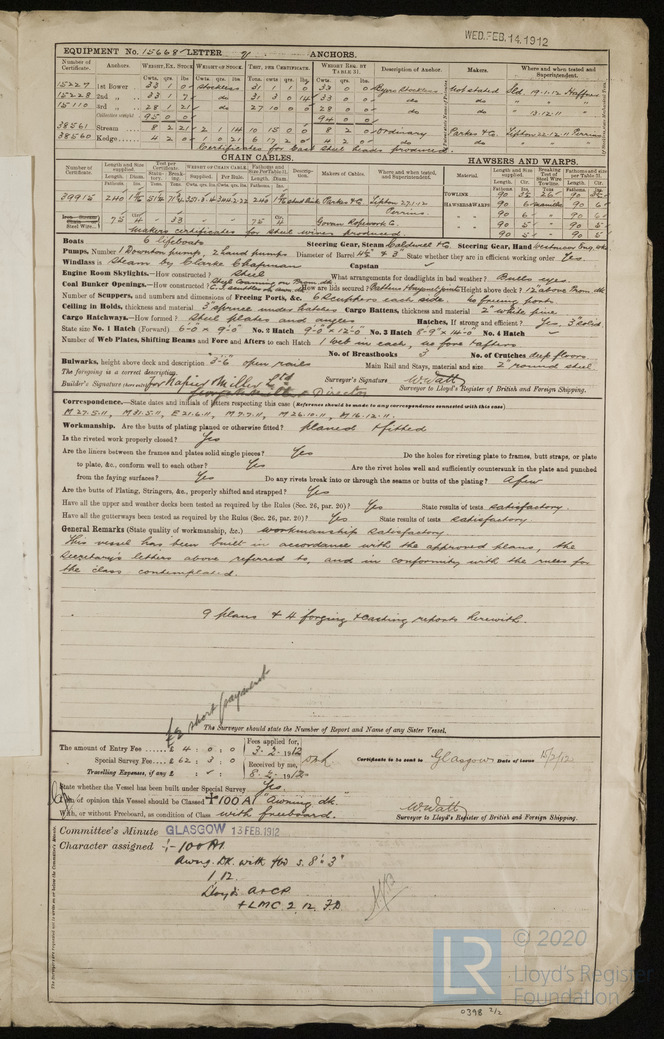 WED. FEB. 14. 1912
EQUIPMENT No. 15668 LETTER y ANCHORS.
Number of Certificate. Anchors. WEIGHT, EX. STOCK WEIGHT OF STOCK. TEST, PER CERTIFICATE. WEIGHT REQ. BY TABLE 31. Description of Anchor. Makers. Where and when tested and Superintendent.
Cwts. qrs. lbs. Cwts. qrs. lbs. Tons. cwts. qrs. lbs. Cwts. qrs. lbs.
15227 1st Bower 33 1 0 Stockless 31 1 1 0 33 0 0 Stockless Not stated Sld. 19.1.12
15228 2nd " 33 1 7 do 31 3 0 14 33 0 0 do do " "
15110 3rd " 28 1 21 do 27 10 0 0 28 0 0 do do " 13.12.11
(Collective weight) 95 0 0 94 0 0
38561 Stream 8 2 21 2 1 14 10 15 0 0 8 2 0 Ordinary Parkes & Co. Tipton 22.12.11 Perrins
38560 Kedge 4 2 0 1 0 21 6 17 2 0 4 2 0 do do do
Certificates for Cast Steel Heads produced.
CHAIN CABLES. HAWSERS AND WARPS.
Number of Certificate. Length and Size supplied. Test per Certificate. WEIGHT OF CHAIN CABLE. Fathoms and Size Per Table 31. Description. Makers of Cables. Where and when tested, and Superintendent. Material. Length and Size supplied. Breaking Test of Steel Wire Towline. Fathoms and size per Table 31.
39915 240 Stud link Parkes & Co. Tipton 27.1.12 Perrins. TOWLINE 90
HAWSERS & WARPS 90 6 manilla 90 6
Steel Wire 75 4 33 75 4 Govan Ropework Co. " 90 6 " 90 6
Makers certificates for steel wires produced. " 90 5 90 5
90 5 90 5
Boats 6 lifeboats Steering Gear, Steam Caldwell & Co. Steering Gear, Hand
Pumps, Number 1 Downton pump, 2 hand pumps Diameter of Barrel 4½ & 3" State whether they are in efficient working order Yes.
Windlass is Steam by Clarke Chapman Capstan ✓
Engine Room Skylights.—How constructed? Steel What arrangements for deadlights in bad weather? Bulls eyes.
Coal Bunker Openings.—How constructed? How are lids secured? Height above deck? 12" above
Number of Scuppers, and numbers and dimensions of Freeing Ports, &c. 6 scuppers each side. freeing ports.
Ceiling in Holds, thickness and material. 3" spruce under hatches Cargo Battens, thickness and material. 2" white pine
Cargo Hatchways.—How formed? Steel plates and angles Hatches, If strong and efficient? Yes, 3" solid
State size No. 1 Hatch (Forward). 6'-0" x 9'-0" No. 2 Hatch 9'-0" x 12'-0" No. 3 Hatch 8'-9" x 14'-0" No. 4 Hatch ✓
Number of Web Plates, Shifting Beams and Fore and Afters to each Hatch 1 Web in each, no fore & afters
No. of Breasthooks 3 No. of Crutches deep floors.
Bulwarks, height above deck and description 3'-6" open rails Main Rail and Stays, material and size 2" round steel
The foregoing is a correct description.
Builder's Signature for Napier & Miller Ltd Surveyor's Signature W. Watt
Director Surveyor to Lloyd's Register of British and Foreign Shipping.
Correspondence.—State dates and initials of letters respecting this case (Reference should be made to any correspondence connected with this case)
M 27.5.11, M 31.5.11, E 21.6.11, M 7.7.11, M 26.10.11, M 16.12.11.
Workmanship. Are the butts of plating planed or otherwise fitted? planed & fitted
Is the riveted work properly closed? Yes
Are the liners between the frames and plates solid single pieces? Yes Do the holes for riveting plate to frames, butt straps, or plate
to plate, &c., conform well to each other? Yes Are the rivet holes well and sufficiently countersunk in the plate and punched
from the faying surfaces? Yes Do any rivets break into or through the seams or butts of the plating? A few
Are the butts of Plating, Stringers, &c., properly shifted and strapped? Yes
Have all the upper and weather decks been tested as required by the Rules (Sec. 26, par. 20)? Yes State results of tests satisfactory.
Have all the gutterways been tested as required by the Rules (Sec. 26, par. 20)? Yes State results of tests satisfactory.
General Remarks (State quality of workmanship, &c.) workmanship satisfactory.
This vessel has been built in accordance with the approved plans, the
Secretary's letters above referred to, and in conformity with the rules for
the class contemplated.
9 plans & 4 forging & casting reports herewith.
for short payment
The Surveyor should state the Number of Report and Name of any Sister Vessel.
The amount of Entry Fee £ 4 : 0 : 0 Fees applied for, 3.2.1912
Special Survey Fee £ 62 : 3 : 0 Received by me, Certificate to be sent to Glasgow Date of issue 15/2/12
Travelling Expenses, if any £ : ✓ : 8.2.1912
State whether the Vessel has been built under Special Survey Yes.
I am of opinion this Vessel should be Classed +100A "Awning dk.
With, or without Freeboard, as condition of Class with freeboard. W. Watt
Surveyor to Lloyd's Register of British and Foreign Shipping.
Committee's Minute GLASGOW 13 FEB. 1912
Character assigned +100A1
Awng. Dk. with fbd s. 8' 3"
1.12
Lloyds A&CP
+LMC 2.12 F.D.
The Surveyors are requested not to write on or below the Committee's Minute.
© 2020
LR Lloyd's Register
Foundation
0398 2/2